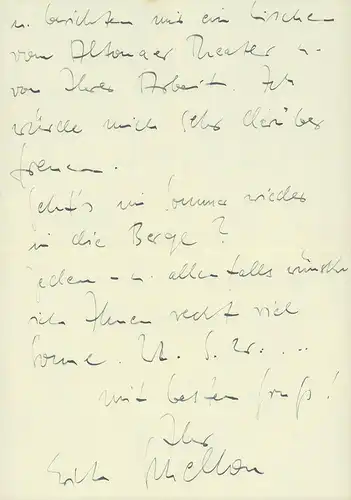 u. berichten mir ein bisschen
vom Altonaer Theater u.
von Ihrer Arbeit. Ich
würde mich sehr darüber
freuen.
Geht's im Sommer wieder
in die Berge?
jeden - u. allenfalls wünsche
ich Ihnen recht viel
Sonne. U. s. w. . . .
mit besten Gruß!
Ihr
Erik